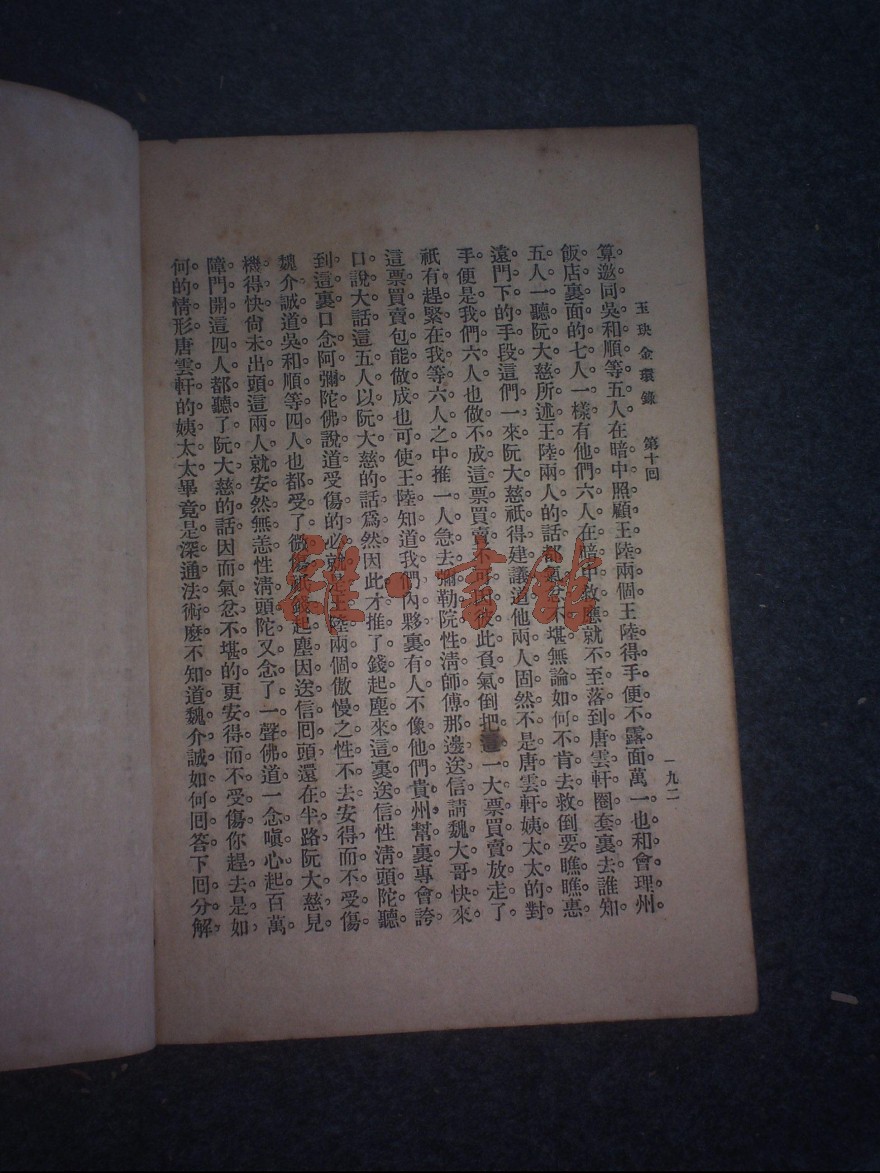 玉玦金環錄　第十回　一九二
算邀同吳和順等五人在暗中照顧王陸兩個王陸得手便不露面萬一也和會理州
飯店裏面的七人一樣有他們六人在暗中救應就不至落到唐雲軒圈套裏去誰知
五人一聽阮大慈所述王陸兩人的話都氣忿不堪無論如何不肯去救倒要瞧瞧惠
遠門下的手段這們一來阮大慈祇得建議道他兩人固然不是唐雲軒姨太太的對
手便是我們六人也做不成這票買賣不可因彼此負氣倒把一大票買賣放走了
祇有趕緊在我等六人之中推一人急去彌勒院性清師傅那邊送信請魏大哥快來
這票買賣包能做成也可使王陸知道我們內夥裏有人不像他們貴州幫裏專會誇
口說大話這五人以阮大慈的話爲然因此才推了錢起塵來這裏送信性清頭陀聽
到這裏口念阿彌陀佛說道受傷的必就是王陸兩個傲慢之性不去安得而不受傷
魏介誠道吳和順等四人也都受了微傷祇錢起塵因送信回頭還在半路阮大慈見
機得快尙未出頭這兩人就安然無恙性淸頭陀又念了一聲佛道一念嗔心起百萬
障門開這四人都聽了阮大慈的話因而氣忿不堪的更安得而不受傷你趕去是如
何的情形唐雲軒的姨太太畢竟是深通法術麼不知道魏介誠如何回答下回分解
雒·書館